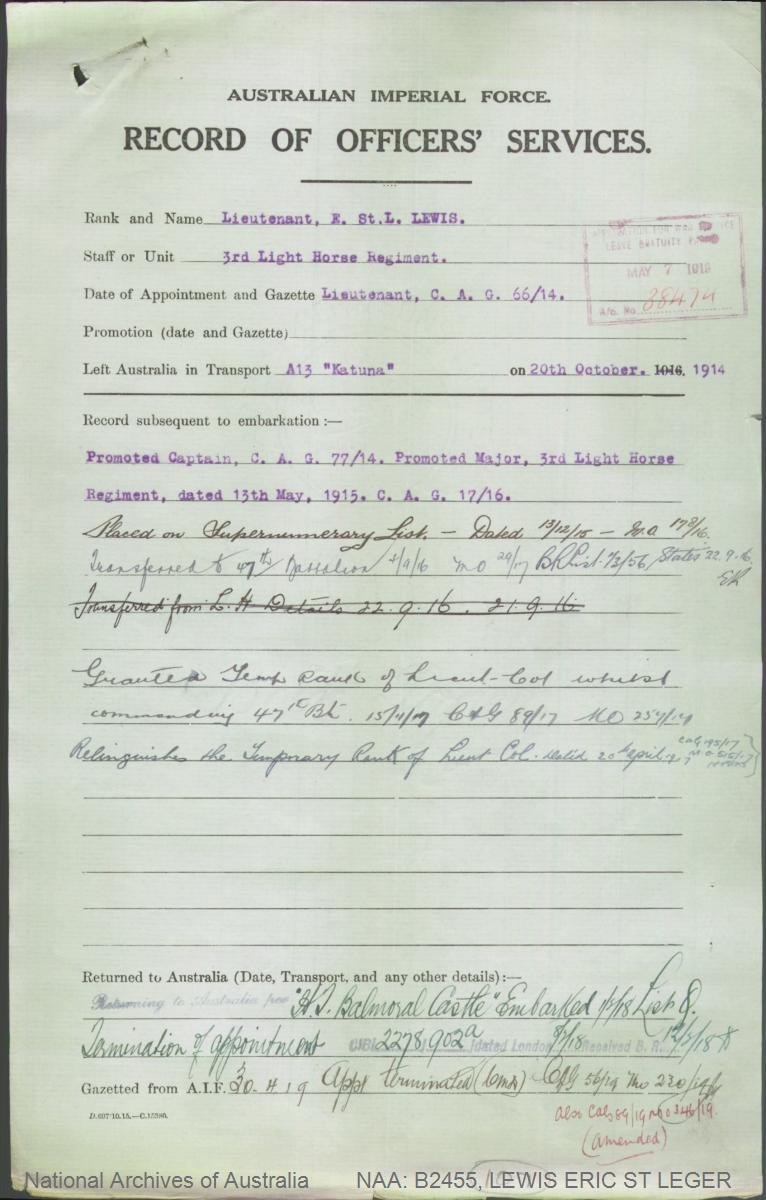 AUSTRALIAN IMPERIAL FORCE.
RECORD OF OFFICERS' SERVICES.
Rank and Name Lieutenant, E. St.L. LEWIS.
LEAVE GRATUITY
Staff or Unit 3rd Light Horse Regiment.
MAY 7 1919
Date of Appointment and Gazette Lieutenant, C. A. G. 66/14.
A/c. No. 38474
Promotion (date and Gazette)
Left Australia in Transport A13 "Katuna" on 20th October. 1916. 1914
Record subsequent to embarkation :—
Promoted Captain, C. A. G. 77/14. Promoted Major, 3rd Light Horse
Regiment, dated 13th May, 1915. C. A. G. 17/16.
Placed on Supernumerary List. — Dated 13/12/15 — M.O. 178/16.
Transferred to 47th Battalion 4/9/16 MO 29/17 22.9.16
Transferred from L. H. Details 22.9.16. 21.9.16
Granted Temp Rank of Lieut-Col whilst
commanding 47th Bn. CAG 89/17 MO
Relinquishes the Temporary Rank of Lieut Col. dated 20th April 17
Returned to Australia (Date, Transport, and any other details):—
Returning to Australia per "H.T. Balmoral Castle" Embarked List 8.
Termination of appointment 2278.902a dated London Received B. R.
Gazetted from A.I.F. 30.4.19 Appt terminated CAG 56/19 MO 230/19
D.697/10.15.—C.15380.
Also CAG 89/19 MO 346/19.
(Amended)
National Archives of Australia NAA: B2455, LEWIS ERIC ST LEGER